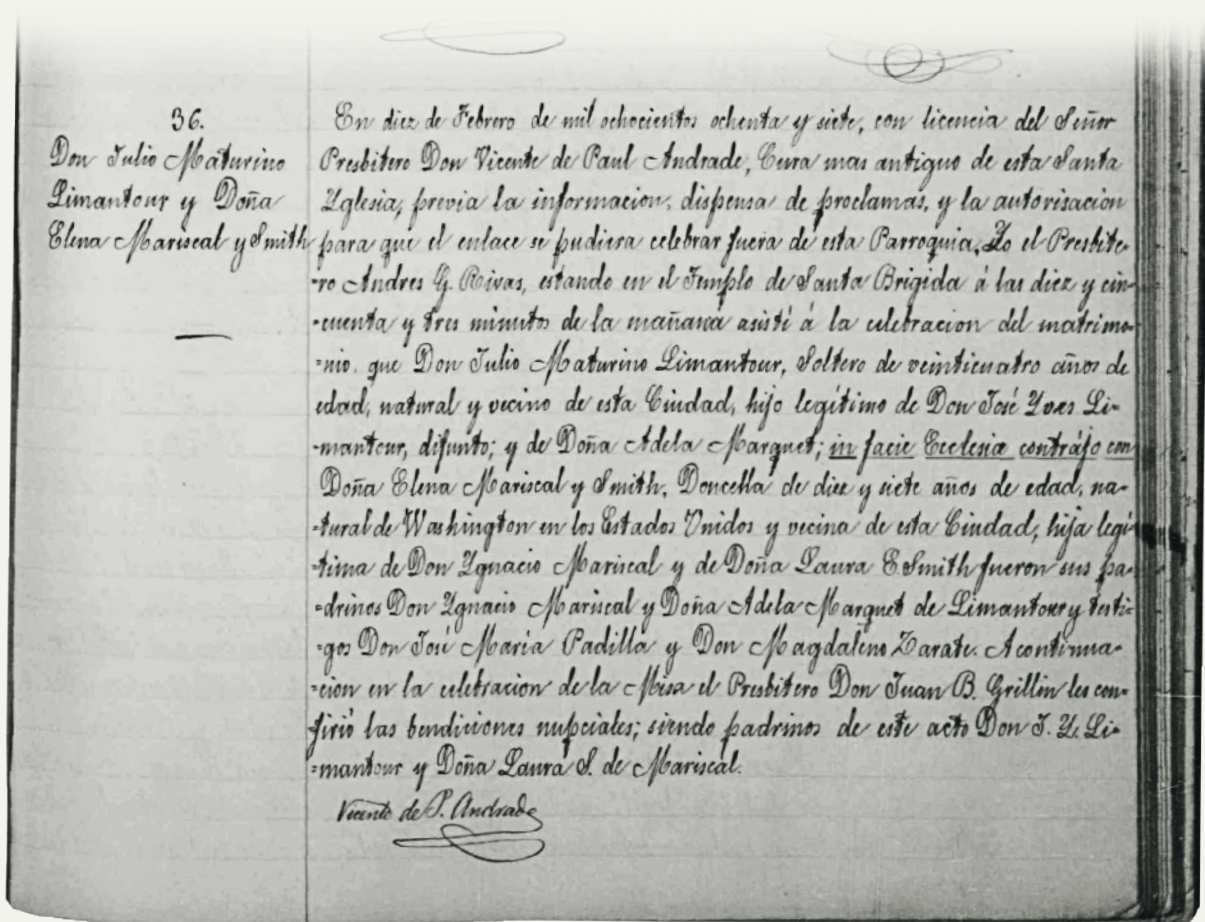 36.
Don Julio Maturino
Limantour y Doña
Elena Mariscal y Smith
En diez de Febrero de mil ochocientos ochenta y siete, con licencia del Señor
Presbitero Don Vicente de Paul Andrade, Cura mas antiguo de esta Santa
Yglesia, previa la informacion, dispensa de proclamas, y la autorisacion
para que el enlace se pudiera celebrar fuera de esta Parroquia, Yo el Presbite-
-ro Andres G. Rivas, estando en el Templo de Santa Brigida á las diez y cin-
-cuenta y tres minutos de la mañana asistí á la celebracion del matrimo-
-nio, que Don Julio Maturino Limantour, Soltero de veinticuatro años de
edad, natural y vecino de esta Ciudad, hijo legítimo de Don José Yves Li-
-mantour, difunto; y de Doña Adela Marquet; in facie Ecclesiæ contrájo con
Doña Elena Mariscal y Smith, Doncella de diez y siete años de edad, na-
-tural de Washington en los Estados Unidos y vecina de esta Ciudad, hija legi-
-tima de Don Ygnacio Mariscal y de Doña Laura E. Smith fueron sus pa-
-drinos Don Ygnacio Mariscal y Doña Adela Marquet de Limantour y testi-
-gos Don José María Padilla y Don Magdaleno Zarate. A continua-
-cion en la celebracion de la Misa el Presbitero Don Juan B. Grillin les con-
firió las bendiciones nupciales; siendo padrinos de este acto Don J. Y. Li-
-mantour y Doña Laura S. de Mariscal.
Vicente de P. Andrade